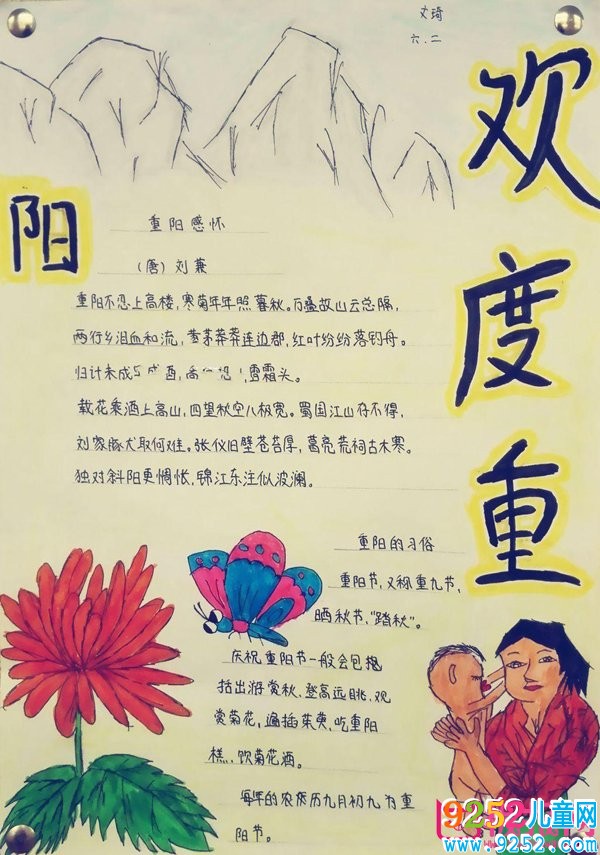 文琦
六.二
欢度重阳
重阳感怀
(唐)刘兼
重阳不忍上高楼，寒菊年年照暮秋。万叠故山云总隔，
两行乡泪血和流，黄茅莽莽连边郡，红叶纷纷落钓舟。
归计未成 酉， 霜头。
载花乘酒上高山，四望秋空八极宽。蜀国江山存不得，
刘家豚犬取何难。张仪旧壁苍苔厚，葛亮荒祠古木寒。
独对斜阳更惆怅，锦江东注似波澜。
重阳的习俗
重阳节，又称重九节，
晒秋节、"踏秋"。
庆祝重阳节一般会包抱
括出游赏秋、登高远眺、观
赏菊花，遍插茱萸、吃重阳
糕、饮菊花酒。
每年的农历九月初九为重
阳节。
9252儿童网
www.9252.com